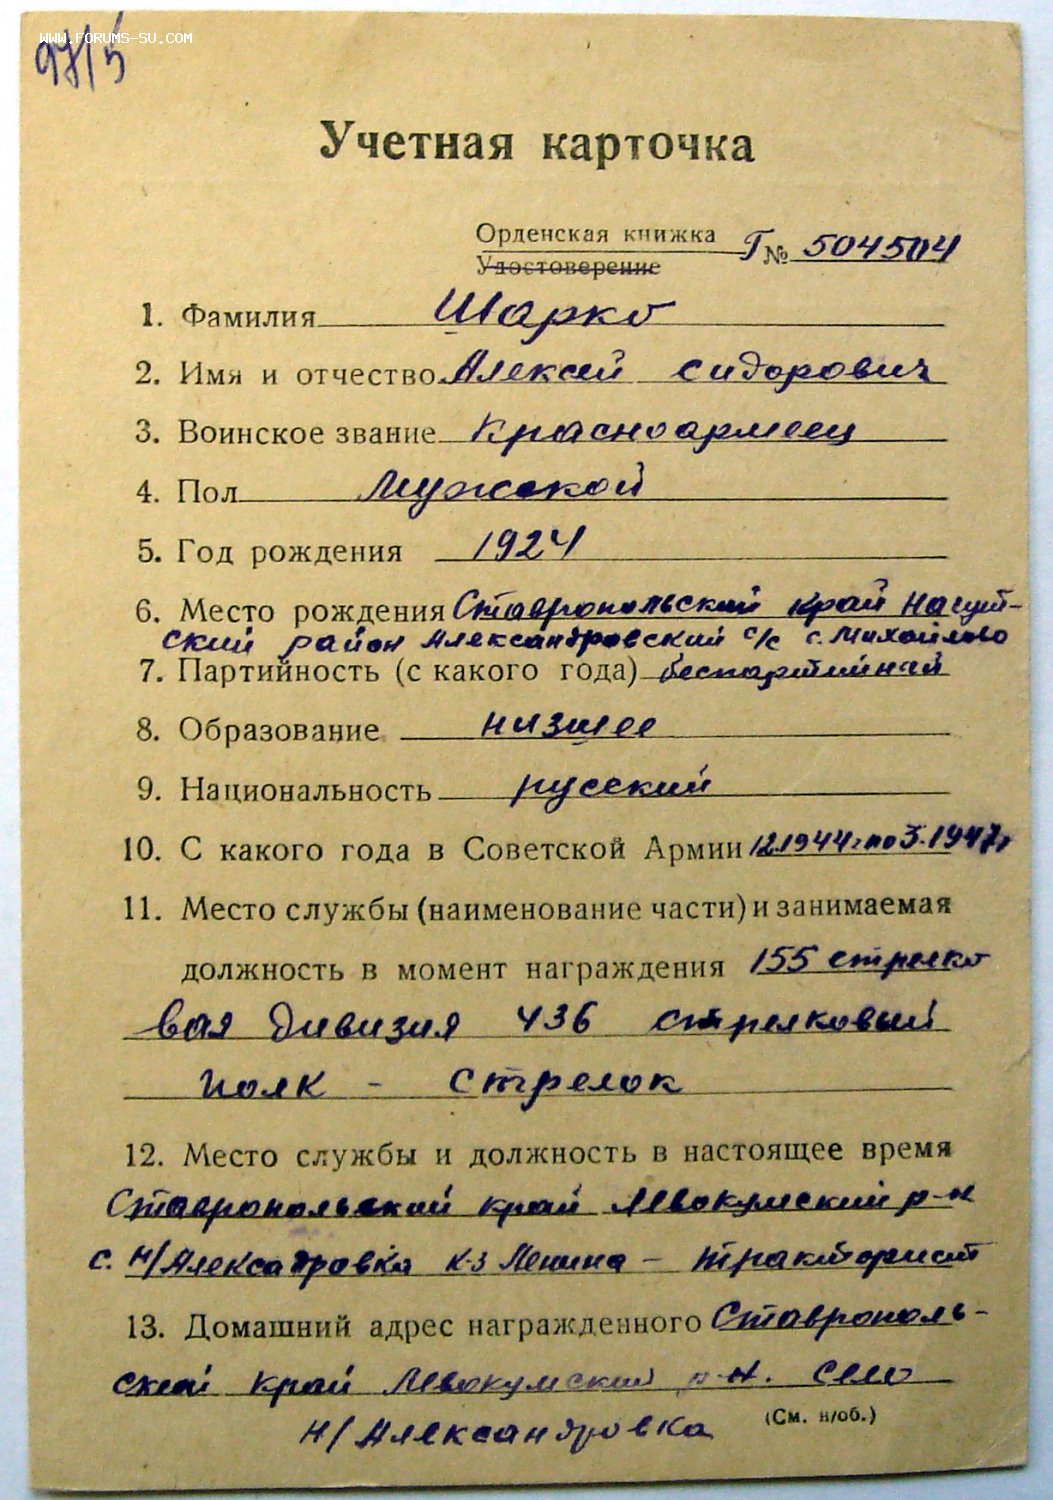 www.forums-su.com
97/5
Учетная карточка
Орденская книжка Г № 504504
Удостоверение
1. Фамилия Шарко
2. Имя и отчество Алексей Сидорович
3. Воинское звание Красноармеец
4. Пол Мужской
5. Год рождения 1924
6. Место рождения Ставропольский край
ский район Александровский с/с с. Михайлово
7. Партийность (с какого года) беспартийный
8. Образование низшее
9. Национальность русский
10. С какого года в Советской Армии 12.1944г по 3.1947г
11. Место службы (наименование части) и занимаемая
должность в момент награждения 155 стрелко
вая дивизия 436 стрелковый
полк - стрелок
12. Место службы и должность в настоящее время
Ставропольский край Левокумский р-н
с. Н/Александровка к-з Ленина - тракторист
13. Домашний адрес награжденного Ставрополь-
ский край Левокумский р-н. село
(См. н/об.)
Н/Александровка